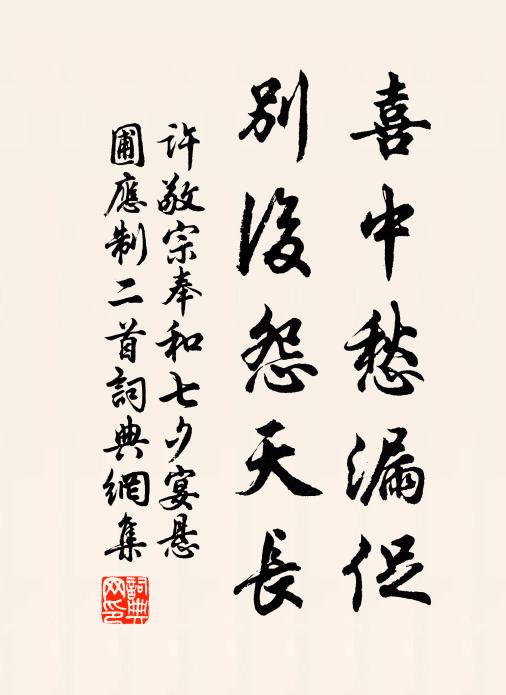 喜中愁漏促
別後怨天長
許敬宗奉和七夕宴悬
圃應制二首詞典網集
詞典
网印